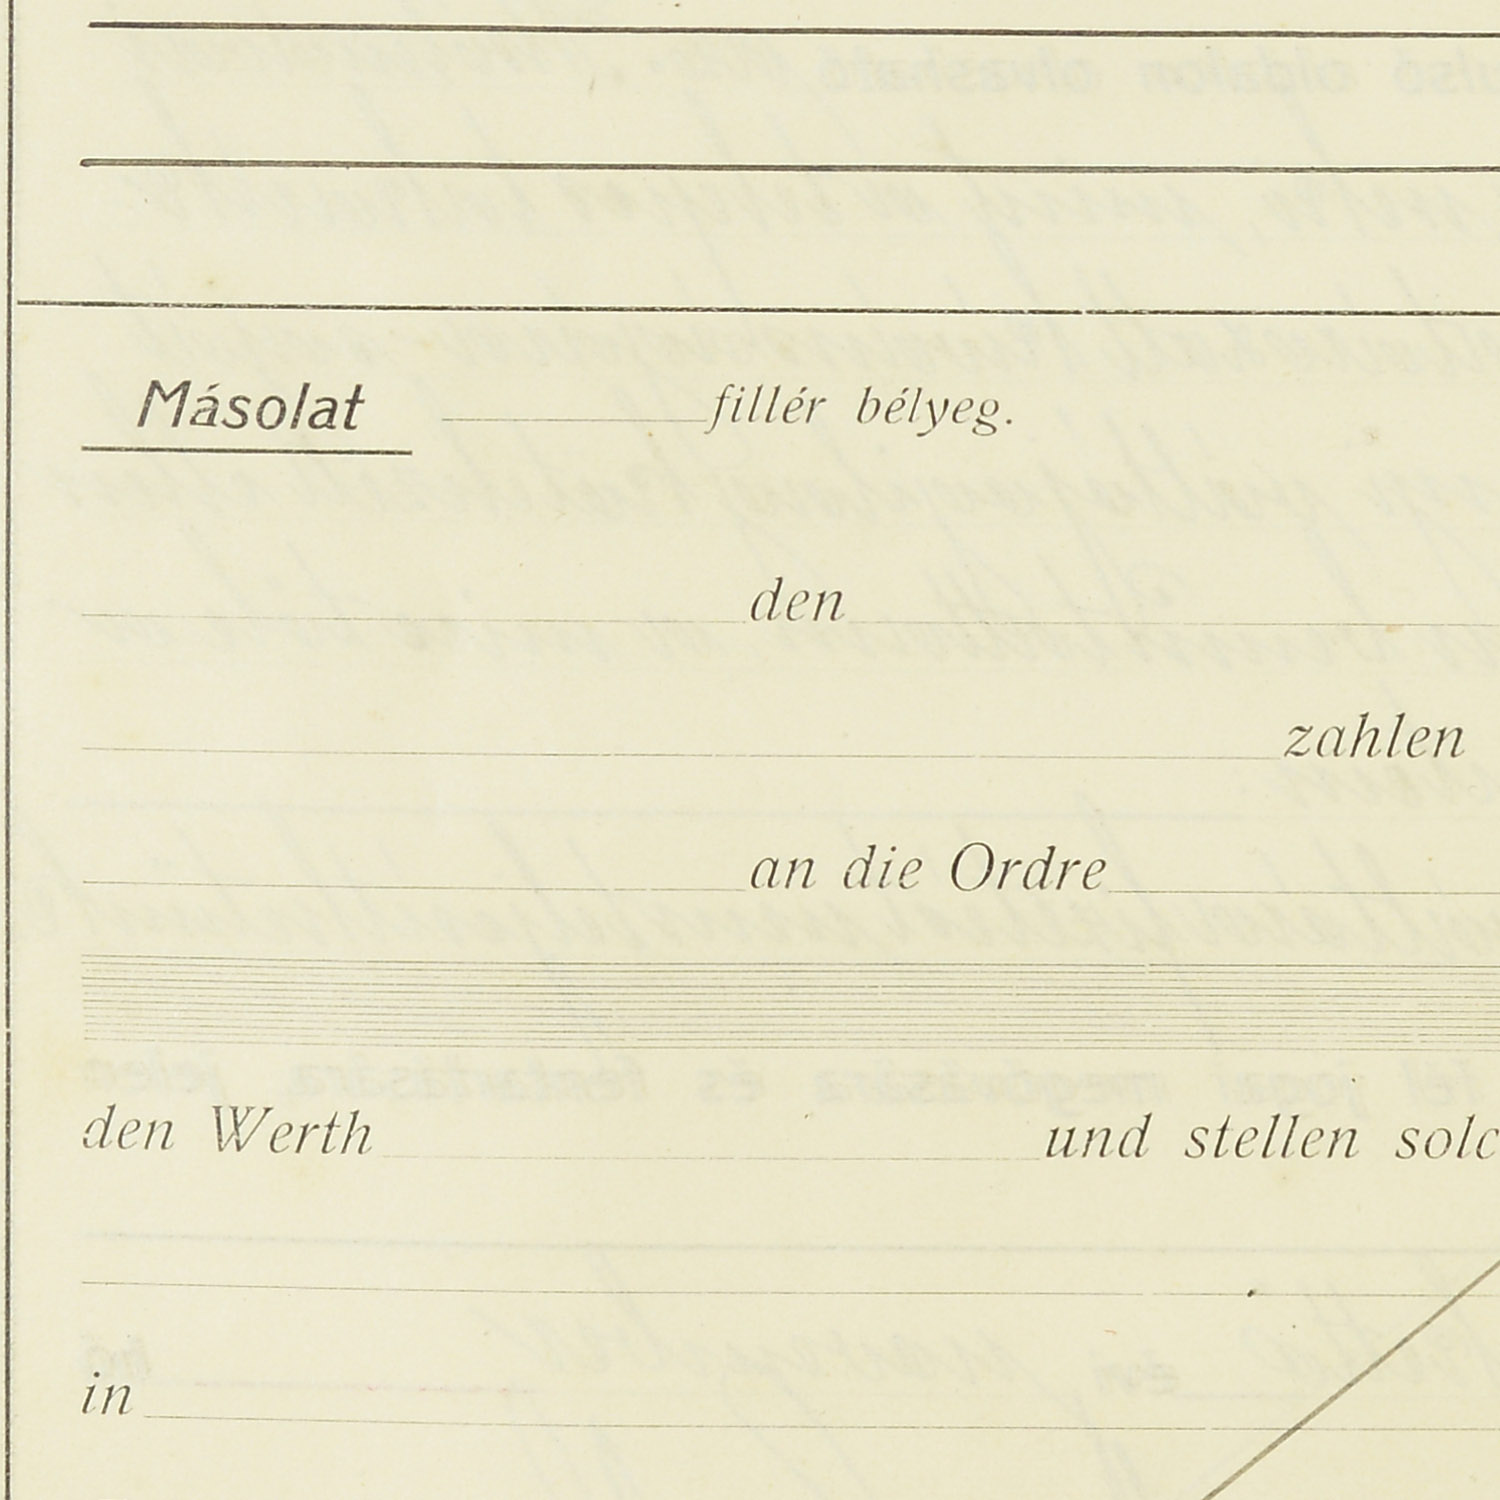 Másolat fillér bélyeg.
den
zahlen
an die Ordre
den Werth und stellen solc
in